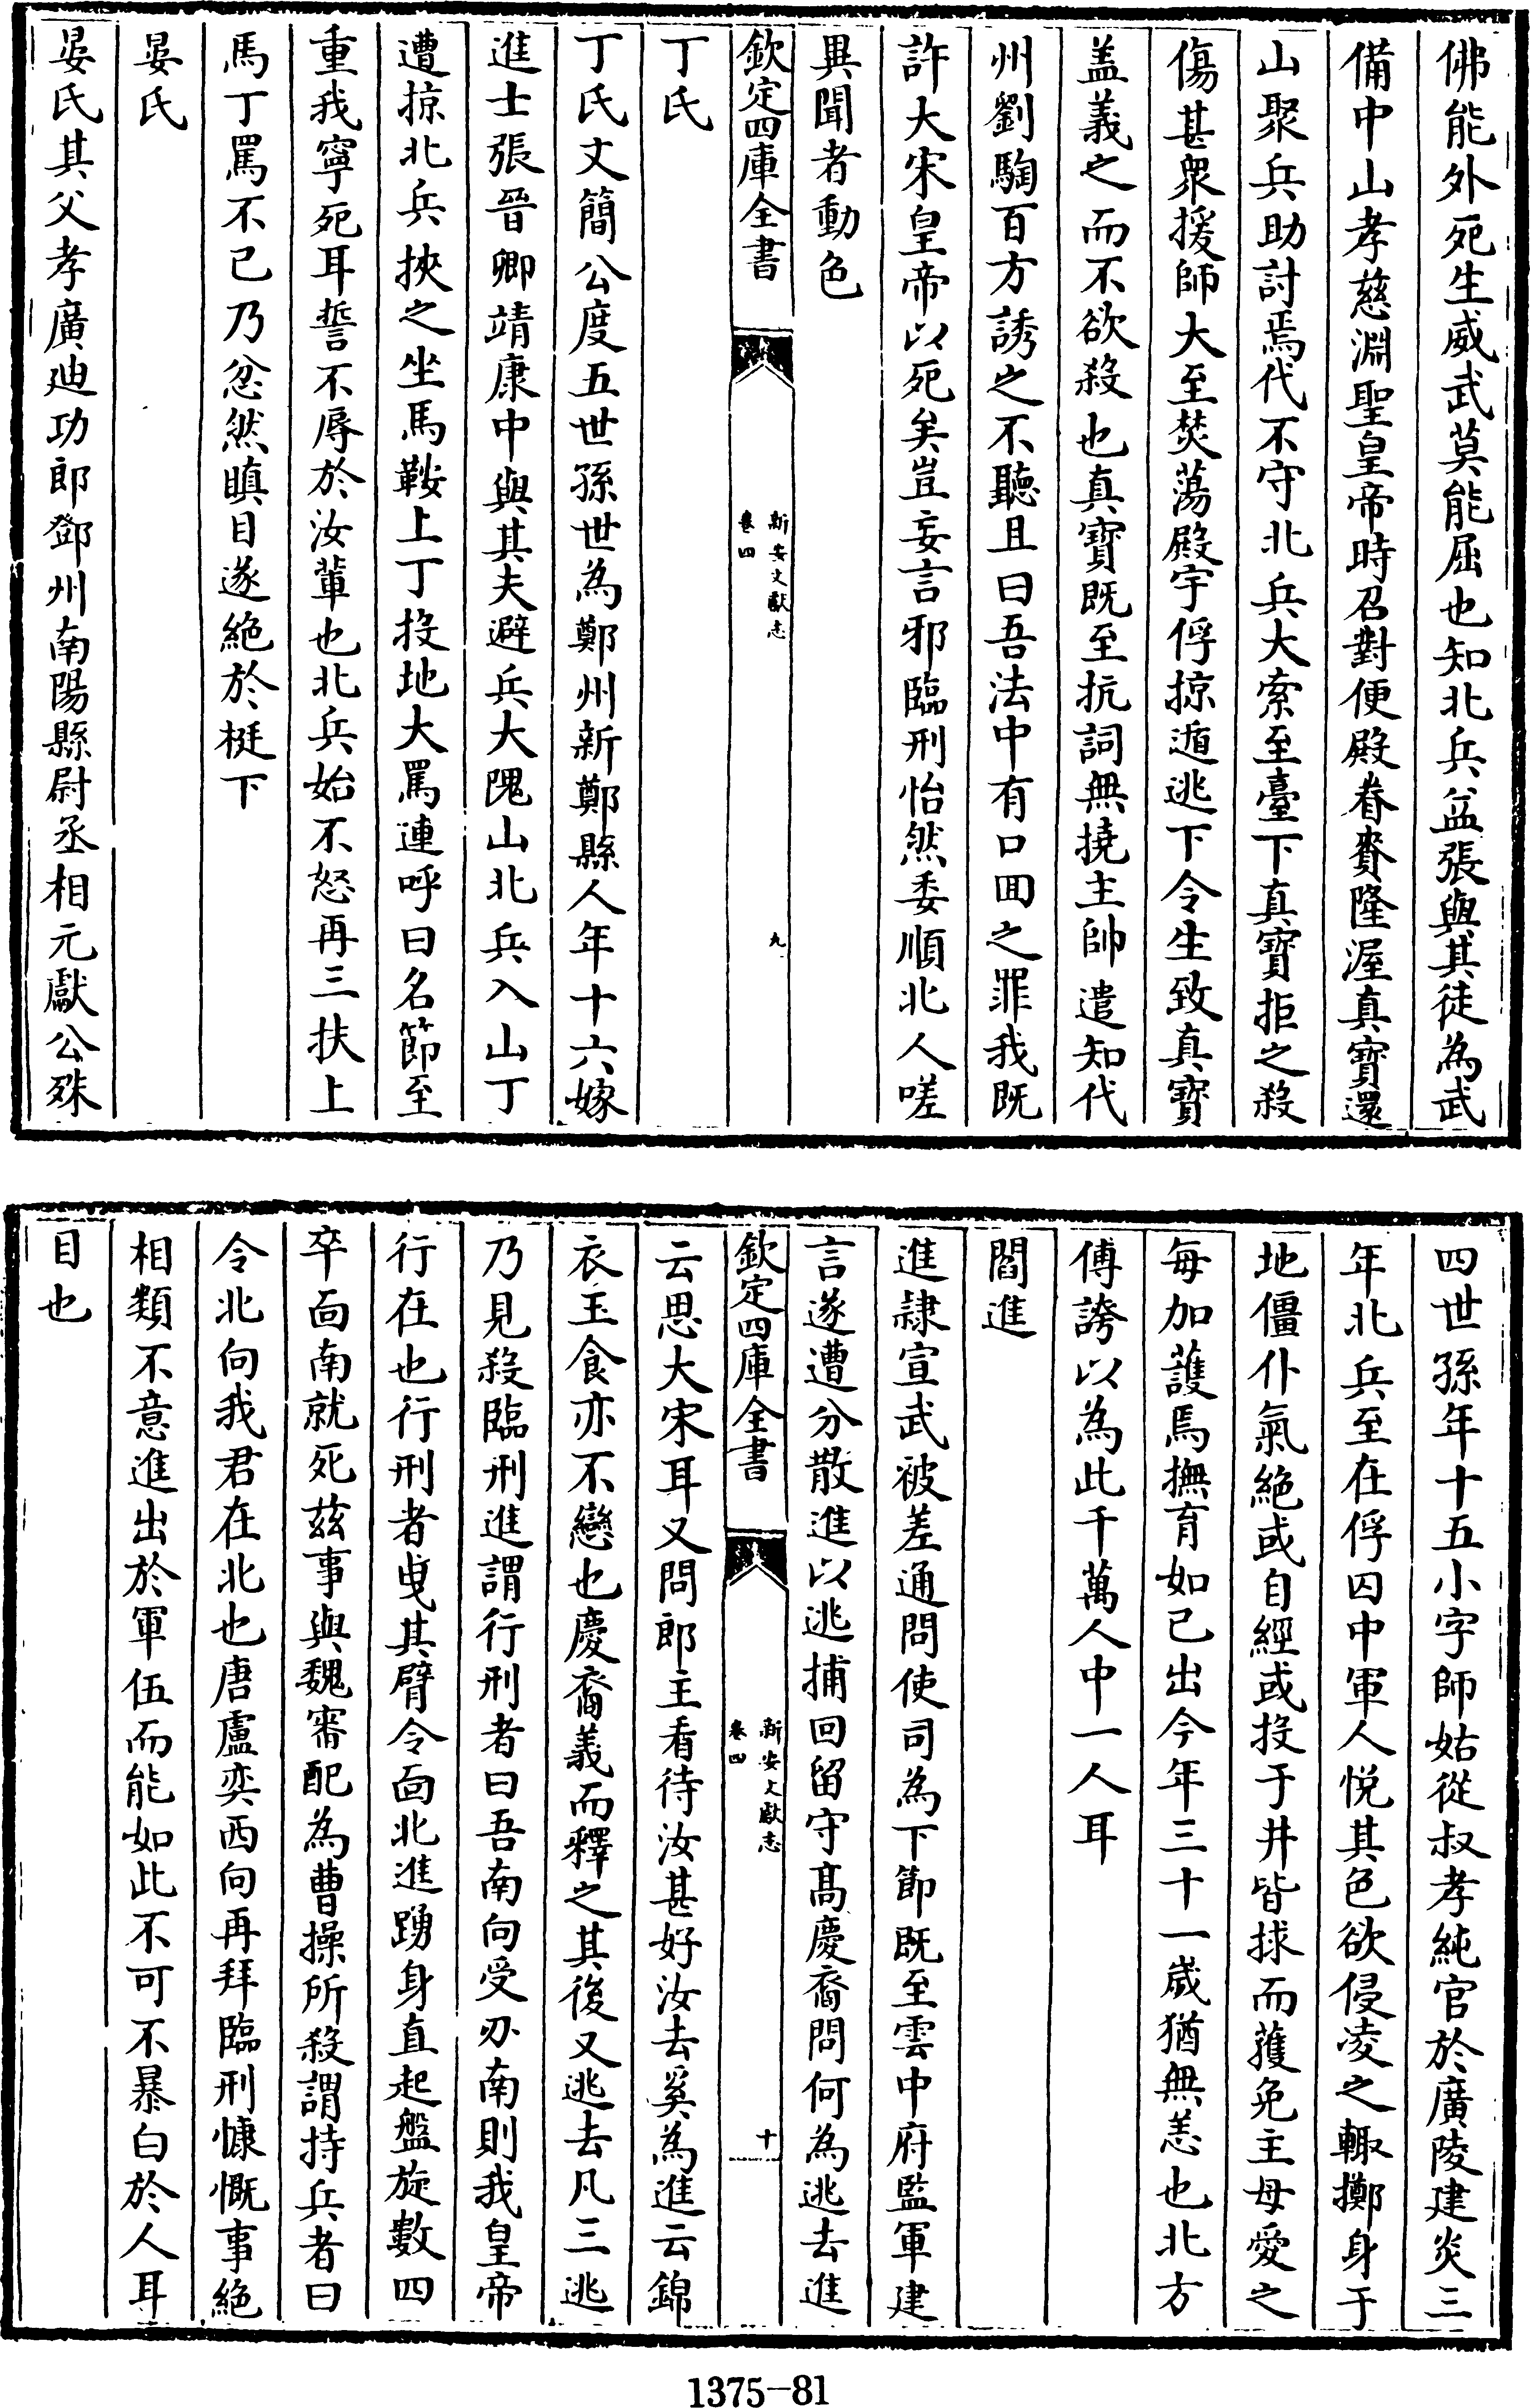 佛能外死生威武莫能屈也知北兵益張與其徒為武
備中山孝慈淵聖皇帝時召對便殿眷賚隆渥真寶還
山聚兵助討焉代不守北兵大索至臺下真寶拒之殺
傷甚衆援師大至焚蕩殿宇俘掠遁逃下令生致真寶
盖義之而不欲殺也真寶既至抗詞無撓主帥遣知代
州劉騊百方誘之不聽且曰吾法中有口囬之罪我既
許大宋皇帝以死矣豈妄言邪臨刑怡然委順北人嗟
異聞者動色
欽定四庫全書
新安文獻志
卷四
九
丁氏
丁氏文簡公度五世孫世為鄭州新鄭縣人年十六嫁
進士張晉卿靖康中與其夫避兵大隗山北兵入山丁
遭掠北兵挾之坐馬鞍上丁投地大罵連呼曰名節至
重我寧死耳誓不辱於汝軰也北兵始不怒再三扶上
馬丁罵不已乃忿然瞋目遂絶於梃下
晏氏
晏氏其父孝廣廸功郎鄧州南陽縣尉丞相元獻公殊
四世孫年十五小字師姑從叔孝純官於廣陵建炎三
年北兵至在俘囚中軍人悅其色欲侵凌之輙擲身于
地僵仆氣絶或自經或投于井皆捄而獲免主母愛之
每加護焉撫育如已出今年三十一歲猶無恙也北方
傳誇以為此千萬人中一人耳
閻進
進隸宣武被差通問使司為下節既至雲中府監軍建
言遂遭分散進以逃捕回留守髙慶裔問何為逃去進
欽定四庫全書
新安文獻志
卷四
十
云思大宋耳又問郎主看待汝甚好汝去奚為進云錦
衣玉食亦不戀也慶裔義而釋之其後又逃去凡三逃
乃見殺臨刑進謂行刑者曰吾南向受刃南則我皇帝
行在也行刑者曵其臂令面北進踴身直起盤旋數四
卒面南就死兹事與魏審配為曹操所殺謂持兵者曰
令北向我君在北也唐盧奕西向再拜臨刑慷慨事絶
相類不意進出於軍伍而能如此不可不暴白於人耳
目也
1375-81